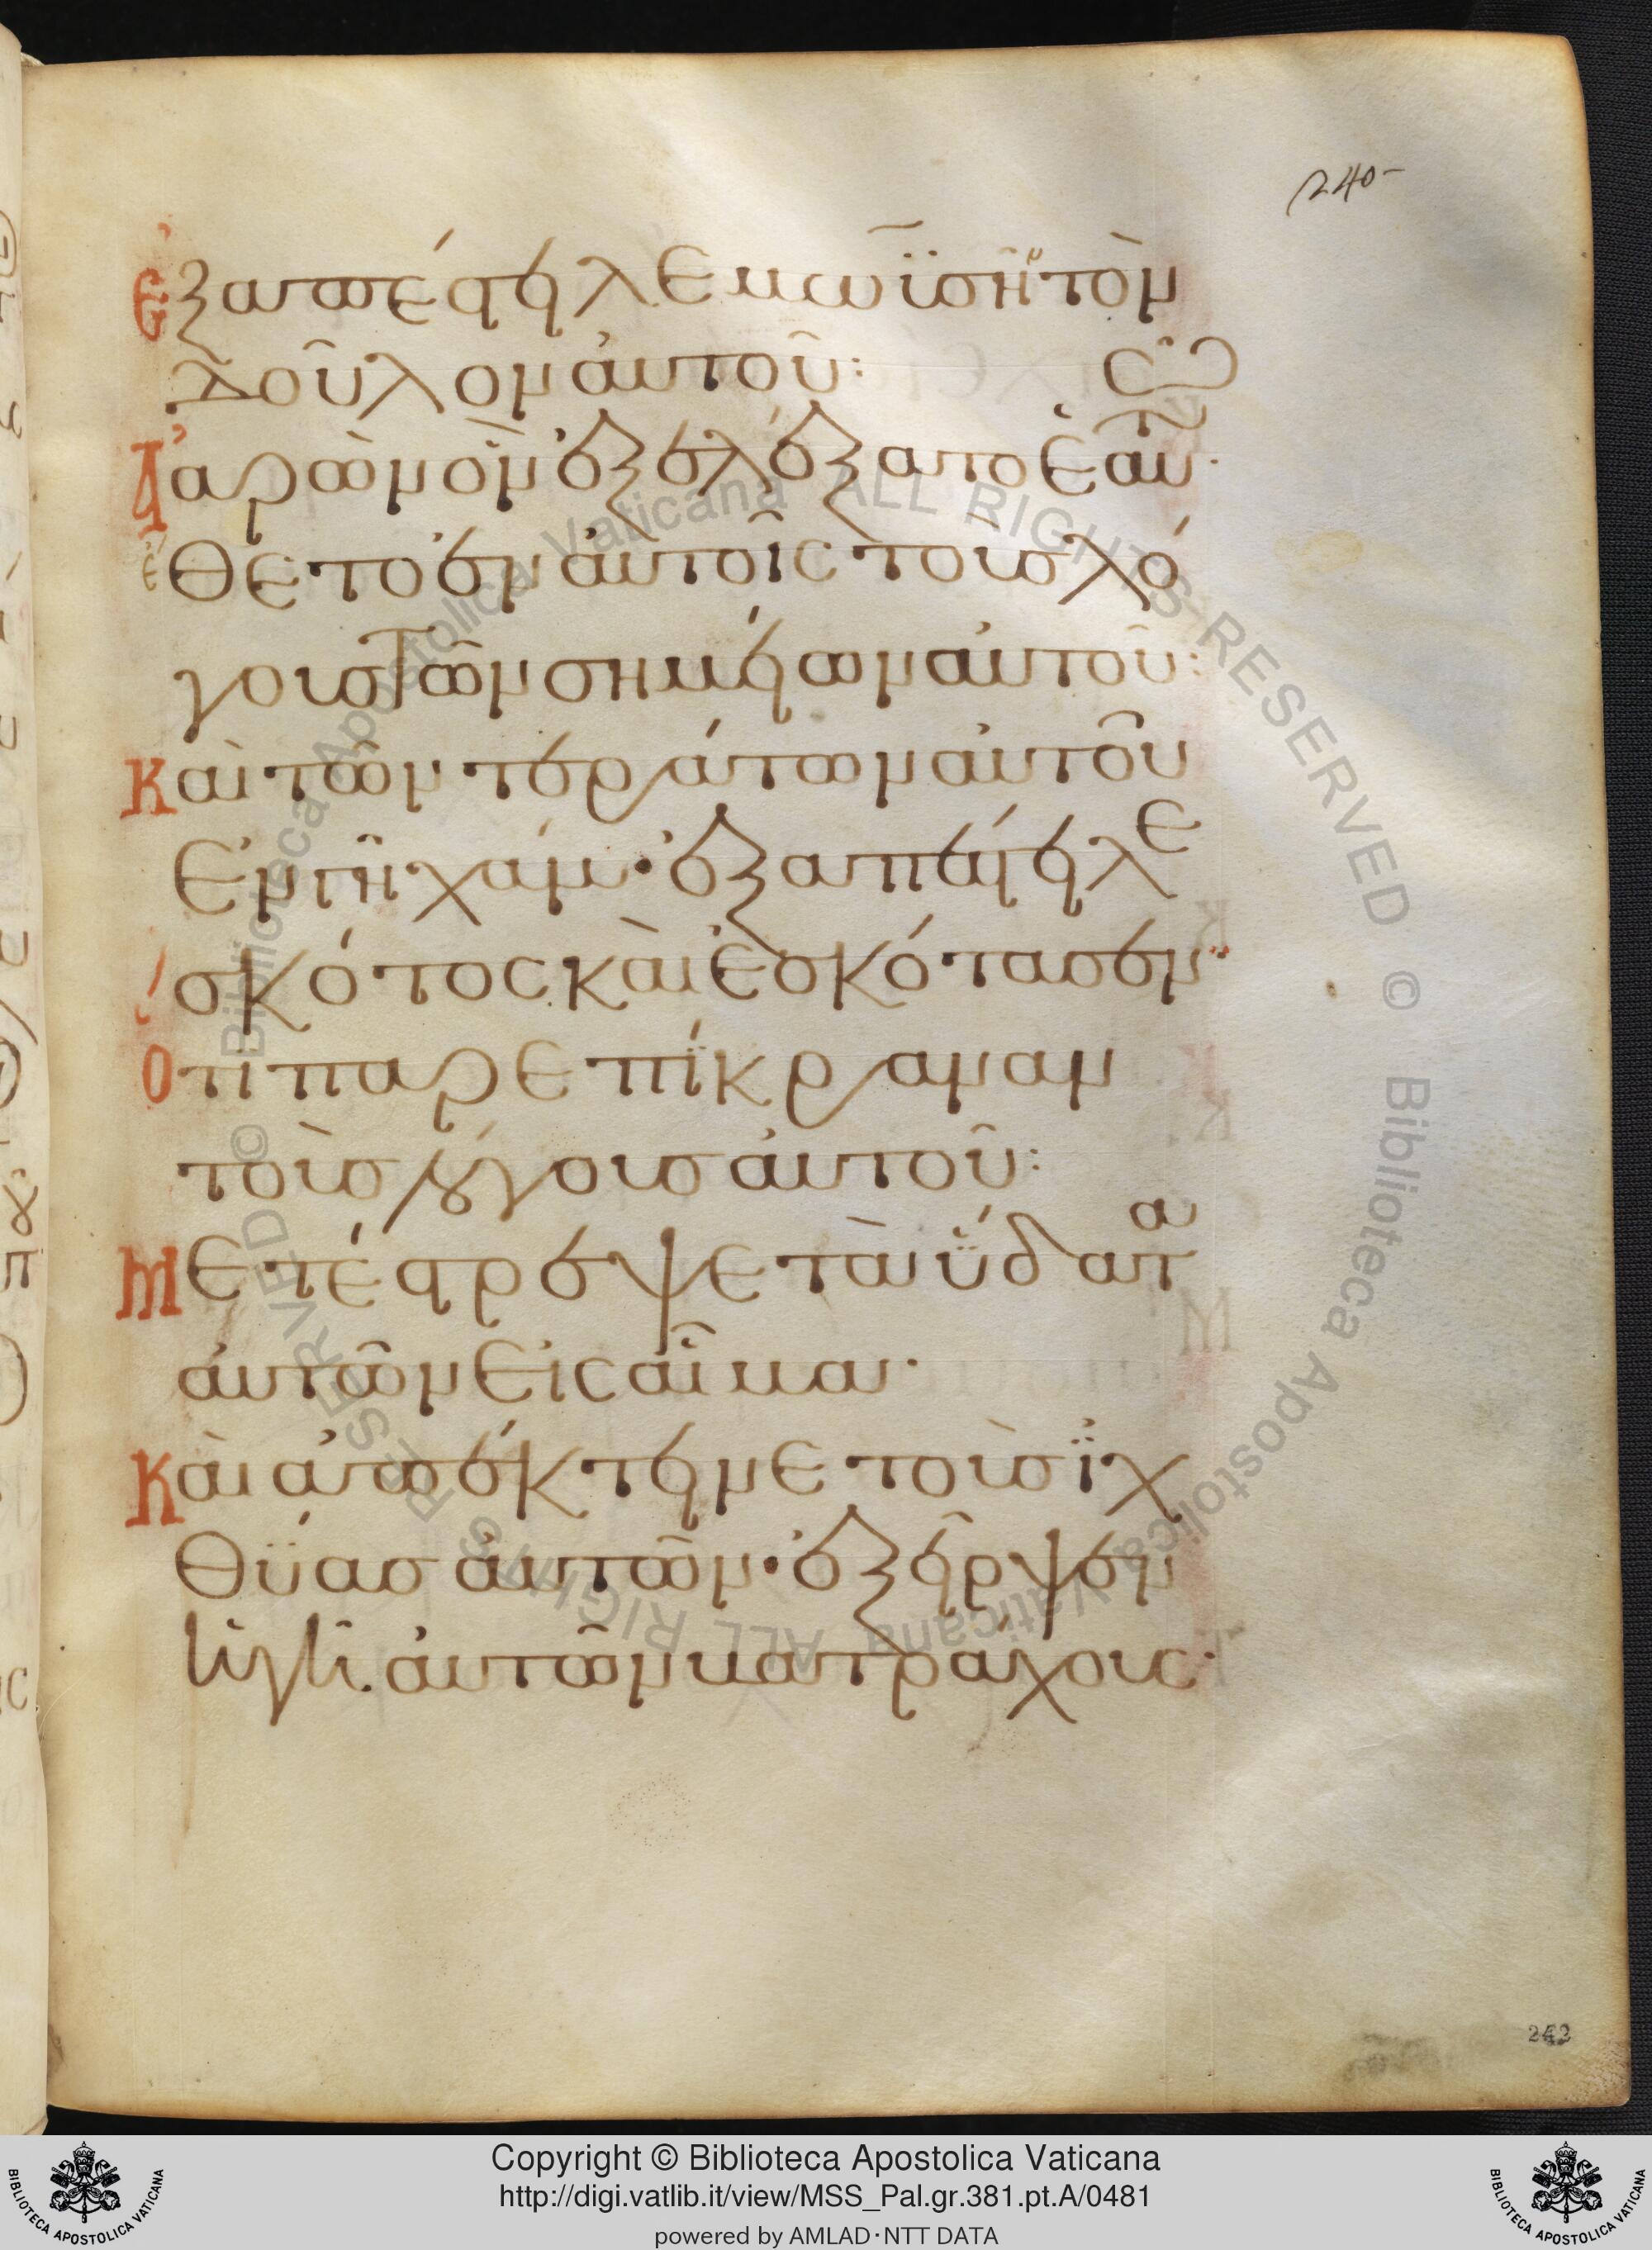 240
Ἐξαπέστειλε μωϋσῆν τὸν
δοῦλον αὐτοῦ:
Ἀαρὼν ὃν ἐξελέξατο ἑαυτ
ἔθετο ἐν αὐτοῖς τοὺς λό
γους τῶν σημείων αὐτοῦ:
Καὶ τῶν τεράτων αὐτοῦ
ἐν γῆ χάμ· ἐξαπέστειλε
σκότος καὶ ἐσκότασεν·
Ὅτι παρεπίκραναν
τοὺς λόγους αὐτοῦ:
Μετέστρεψε τὰ ὕδατα
αὐτῶν εἰς αἷμα·
Καὶ ἀπέκτεινε τοὺς ἰχ
θύας αὐτῶν· ἐξεῖρψεν
ἡ γῆ αὐτῶν βατράχους·
242
© Biblioteca Apostolica Vaticana ALL RIGHTS RESERVED © Biblioteca Apostolica Vaticana ALL RIGHTS RESERVED
Copyright © Biblioteca Apostolica Vaticana
http://digi.vatlib.it/view/MSS_Pal.gr.381.pt.A/0481
powered by AMLAD·NTT DATA
BIBLIOTECA APOSTOLICA VATICANA
BIBLIOTECA APOSTOLICA VATICANA